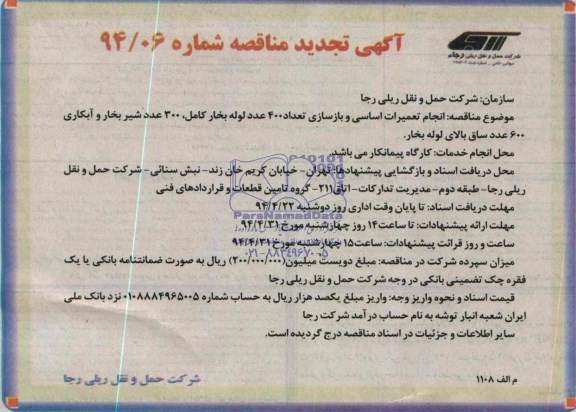 آگهی تجدید مناقصه شماره ۹۴/۰۶
شرکت حمل و نقل ریلی رجاء
سازمان: شرکت حمل و نقل ریلی رجا
موضوع مناقصه: انجام تعمیرات اساسی و بازسازی تعداد۴۰۰ عدد لوله بخار کامل، ۳۰۰ عدد شیر بخار و آبکاری
۶۰۰ عدد ساق بالای لوله بخار.
محل انجام خدمات: کارگاه پیمانکار می باشد.
محل دریافت اسناد و بازگشایی پیشنهادها: تهران- خیابان کریم خان زند- نبش سنائی- شرکت حمل و نقل
ریلی رجا- طبقه دوم- مدیریت تدارکات- اتاق۲۱۱- گروه تامین قطعات و قراردادهای فنی
مهلت دریافت اسناد: تا پایان وقت اداری روز دوشنبه ۹۴/۴/۲۲
مهلت ارائه پیشنهادات: تا ساعت۱۴ روز چهارشنبه مورخ ۹۴/۴/۳۱
ساعت و روز قرائت پیشنهادات: ساعت۱۵ چهارشنبه مورخ ۹۴/۴/۳۱
میزان سپرده شرکت در مناقصه: مبلغ دویست میلیون(۲۰۰/۰۰۰/۰۰۰) ریال به صورت ضمانتنامه بانکی یا یک
فقره چک تضمینی بانکی در وجه شرکت حمل و نقل ریلی رجا
قیمت اسناد و نحوه واریز وجه: واریز مبلغ یکصد هزار ریال به حساب شماره ۰۱۰۸۸۸۴۹۶۵۰۰۵ نزد بانک ملی
ایران شعبه انبار توشه به نام حساب درآمد شرکت رجا
سایر اطلاعات و جزئیات در اسناد مناقصه درج گردیده است.
م الف ۱۱۰۸
شرکت حمل و نقل ریلی رجا
ParsNamadData
۰۲۱-۸۸۳۴۹۶۷۰-۵